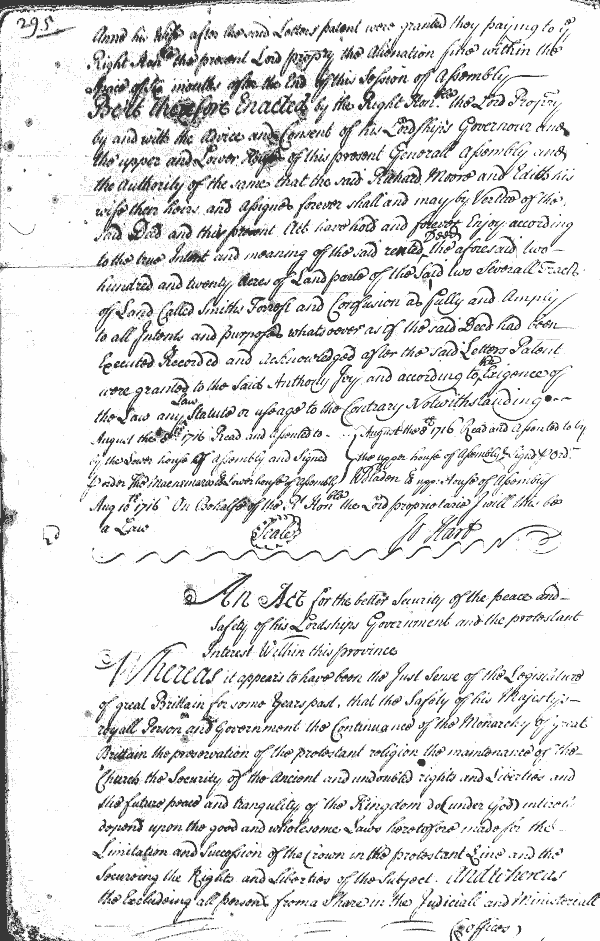 295
Annd his Wife after the said Letters patent were granted they paying to ye
Right Honble the present Lord propry the Alienation fine within the
Space of six months after the End of this Session of Assembly
Be it therefore Enacted by the Right Honble the Lord Propry
by and with the Advice and Consent of his Lordships Governour and
the upper and Lower House of this present Generall Assembly and
the Authority of the same that the said Richard Moore and Edith his
wife their heirs and Assignes forever shall and may by Vertue of the
said Deed and this present Act have hold and forever Enjoy according
to the true Intent and meaning of the said recited Deed the aforesaid two
hundred and twenty Acres of Land parte of the said two Severall Tracts
of Land Called Smiths Forrest and Confusion as fully and Amply
to all Intents and Purposes whatsoever as if the said Deed had been
Executed Recorded and Acknowledged after the said Letters Patent
were granted to the said Anthony Ivy and according to the Exigence of
the Law any Law Statute or useage to the Contrary Notwithstanding
August the 8th 1716 Read and assented to
by the Lower house of Assembly and Signed
p order Tho Macnemara Lower house of Assembly
August the 8th 1716 Read and Assented to by
the upper house of Assembly & Signd p Ordr
W Bladen upp House of Assembly
Aug 10th 1716 On Behalfe of the Rt Honble the Lord proprietarie I will this be
a Law
Seale
Jo Hart
An Act for the better Security of the peace and
Safety of his Lordships Government and the protestant
Interest Within this province
Whereas it appears to have been the Just Sense of the Legislature
of great Brittain for some Years past, that the Safety of his Majestys
royall Person and Government the Continuance of the Monarchy of great
Brittain the preservation of the protestant religion the maintenance of the
Church the Security of the Ancient and undoubted rights and Liberties and
the future peace and tranquility of the Kingdom do (under God) intirely
depend upon the good and wholesome Laws heretofore made for the
Limitation and Succession of the Crown in the protestant Line and the
Secureing the Rights and Liberties of the Subject. And whereas
the Excludeing all persons from a Share in the Judiciall and Ministeriall
(offices)